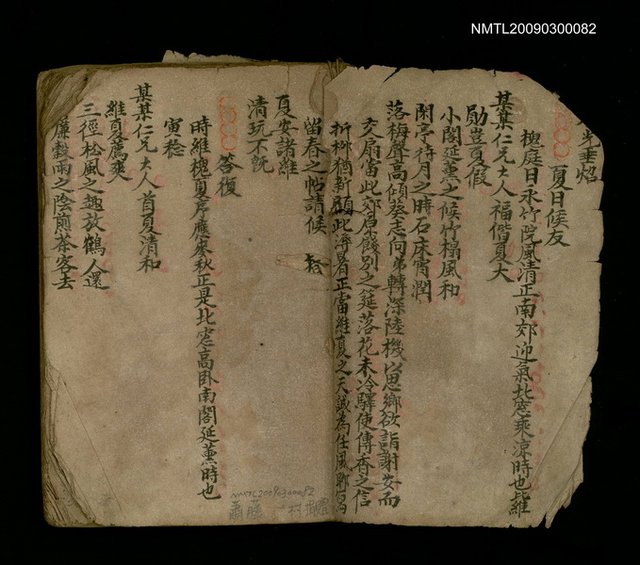 NMTL20090300082
光垂焰
夏日候友
槐庭日永竹院風清正南郊迎氣北窓乘凉時也維
某某仁兄大人福偕夏大
勛豈夏假
小閣延薰之候竹榻風和
閑亭待月之時石床宵潤
落梅聲高傾葵志向弟轉深陸機以思鄉欲詣謝安而
交扇當此郊居餞別之筵落花未冷驛使傳香之信
折柳猶新願此
留春之帖請候
夏安諸維
清玩不既
答復
時維槐夏序應麥秋正是北窓高卧南閣延薰時也
寅稔
某某仁兄大人首夏清和
維夏薦爽
三徑松風之趣放鶴人還
簾穀雨之陰煎茶客去
NMTL20090300082